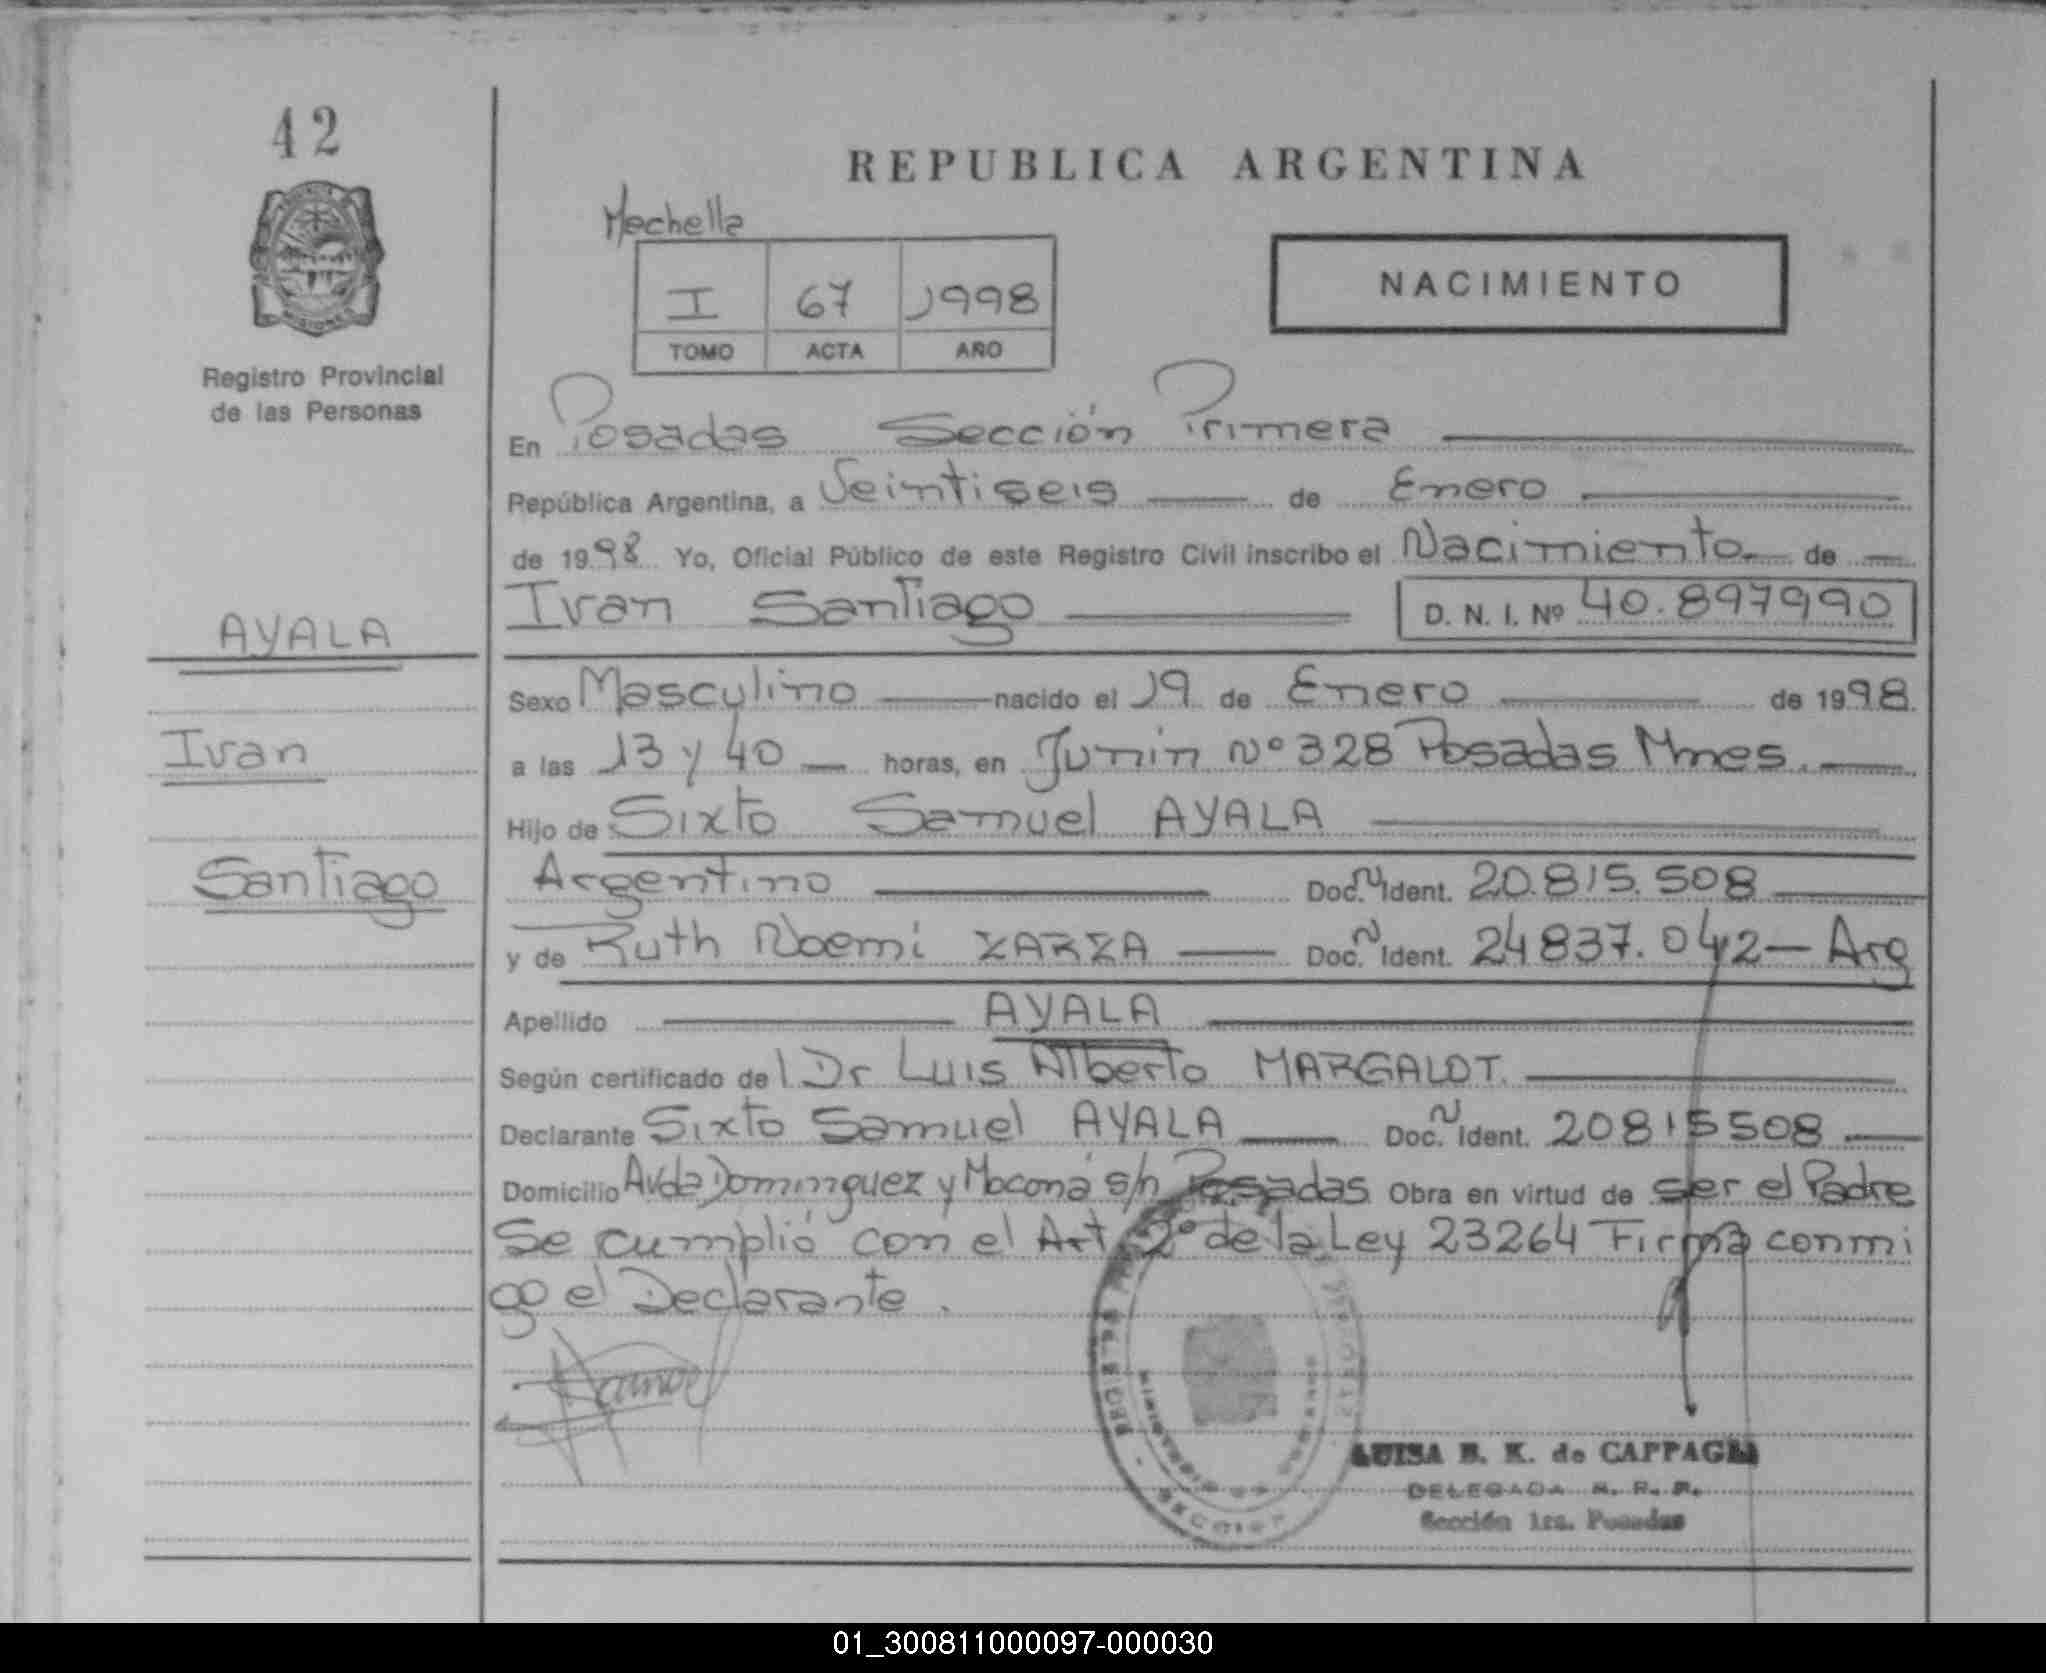 42
REPUBLICA ARGENTINA
Mechella
NACIMIENTO
I 67 1998
TOMO ACTA AÑO
MISIONES
Registro Provincial
de las Personas
En Posadas Sección Primera
República Argentina, a Veintiseis de Enero
de 1998 Yo, Oficial Público de este Registro Civil inscribo el Nacimiento de
Ivan Santiago D. N. I. Nº 40.897990
AYALA
Sexo Masculino nacido el 19 de Enero de 1998
Ivan
a las 13 y 40 horas, en Junin Nº 328 Posadas Mnes.
Hijo de Sixto Samuel AYALA
Santiago
Argentino Doc. N Ident. 20.815.508
y de Ruth Noemi ZARZA Doc. N Ident. 24837.042 - Arg
Apellido AYALA
Según certificado del Dr Luis Alberto MARGALOT.
Declarante Sixto Samuel AYALA Doc. N Ident. 20815508
Domicilio Avda Dominguez y Mocona s/n Posadas Obra en virtud de ser el Padre
Se cumplió con el Art 2º de la Ley 23264 Firma conmi
go el Declarante.
MINISTERIO DE GOBIERNO
SECCION
LUISA B. K. de CAPPAGLI
DELEGADA R. P. P.
Sección 1ra. Posadas
01_300811000097-000030